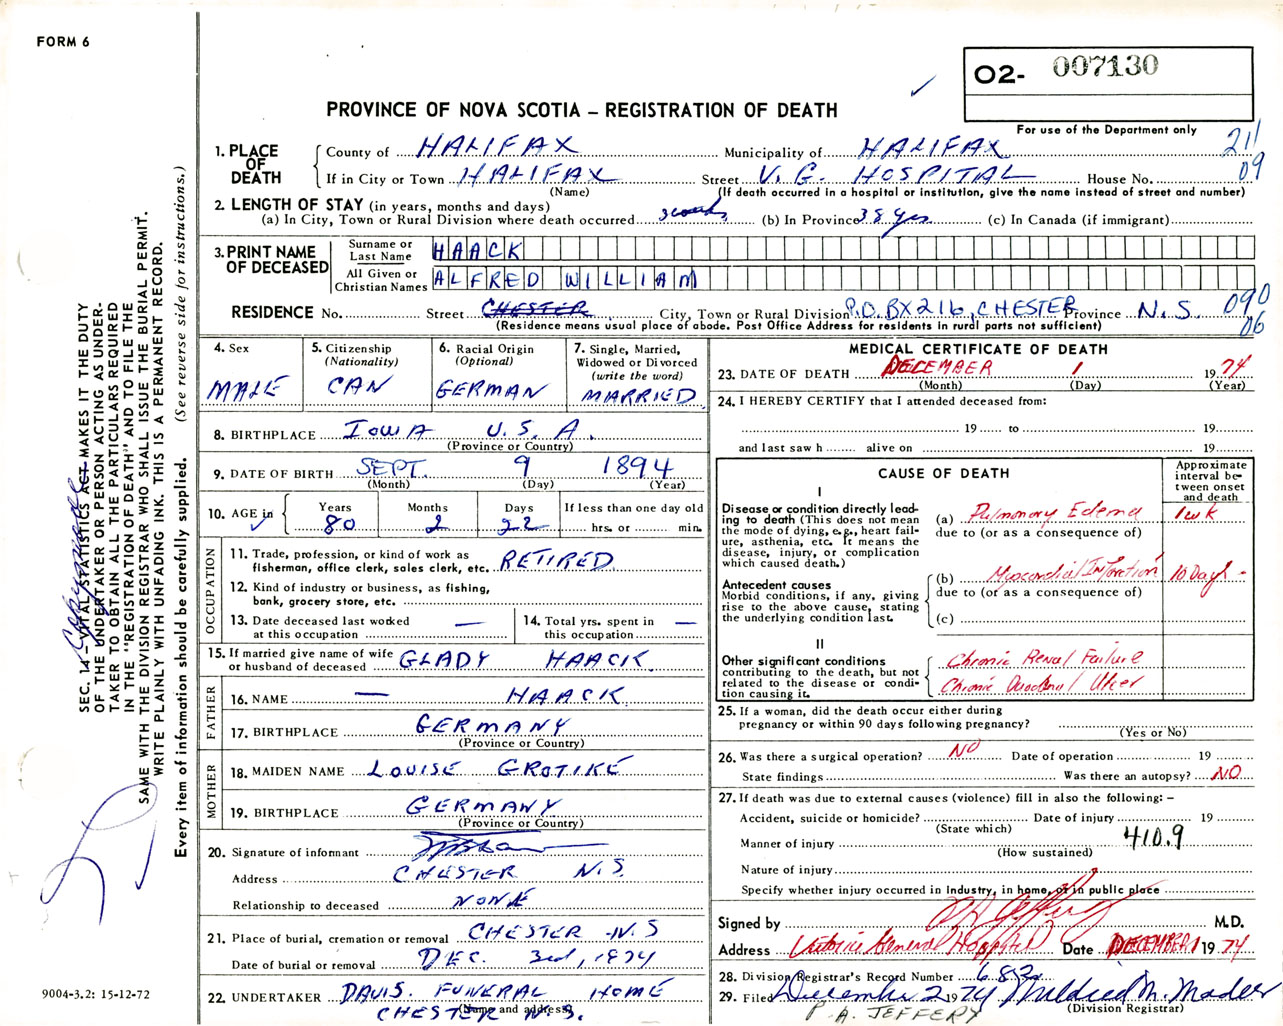 FORM 6
O2- 007130
PROVINCE OF NOVA SCOTIA – REGISTRATION OF DEATH
For use of the Department only
211
09
1. PLACE OF DEATH
County of HALIFAX Municipality of HALIFAX
If in City or Town HALIFAX Street V. G. HOSPITAL House No.
(Name) (If death occurred in a hospital or institution, give the name instead of street and number)
2. LENGTH OF STAY (in years, months and days)
(a) In City, Town or Rural Division where death occurred 3 weeks (b) In Province 38 yrs (c) In Canada (if immigrant)
3. PRINT NAME OF DECEASED
Surname or Last Name HAACK
All Given or Christian Names ALFRED WILLIAM
RESIDENCE No. Street CHESTER City, Town or Rural Division P.O. BX 216, CHESTER Province N.S. 090
06
(Residence means usual place of abode. Post Office Address for residents in rural parts not sufficient)
4. Sex
MALE
5. Citizenship
(Nationality)
CAN
6. Racial Origin
(Optional)
GERMAN
7. Single, Married,
Widowed or Divorced
(write the word)
MARRIED
8. BIRTHPLACE IOWA U.S.A.
(Province or Country)
9. DATE OF BIRTH SEPT. 9 1894
(Month) (Day) (Year)
10. AGE in
Years Months Days If less than one day old
80 2 22 hrs. or min.
OCCUPATION
11. Trade, profession, or kind of work as
fisherman, office clerk, sales clerk, etc. RETIRED
12. Kind of industry or business, as fishing,
bank, grocery store, etc.
13. Date deceased last worked
at this occupation —
14. Total yrs. spent in
this occupation —
15. If married give name of wife
or husband of deceased GLADY HAACK
FATHER
16. NAME — HAACK
17. BIRTHPLACE GERMANY
(Province or Country)
MOTHER
18. MAIDEN NAME LOUISE GROTIKE
19. BIRTHPLACE GERMANY
(Province or Country)
20. Signature of informant
Address CHESTER N.S.
Relationship to deceased NONE
21. Place of burial, cremation or removal CHESTER N.S
Date of burial or removal DEC. 3rd, 1974
22. UNDERTAKER DAVIS. FUNERAL HOME
(Name and address)
CHESTER N.S.
MEDICAL CERTIFICATE OF DEATH
23. DATE OF DEATH DECEMBER 1 1974
(Month) (Day) (Year)
24. I HEREBY CERTIFY that I attended deceased from:
19 to 19
and last saw h alive on 19
CAUSE OF DEATH
Approximate
interval be-
tween onset
and death
I
Disease or condition directly lead-
ing to death (This does not mean
the mode of dying, e.g., heart fail-
ure, asthenia, etc. It means the
disease, injury, or complication
which caused death.)
(a) Pulmonary Edema 1 wk
due to (or as a consequence of)
Antecedent causes
Morbid conditions, if any, giving
rise to the above cause, stating
the underlying condition last.
(b) Myocardial Infarction 10 Days -
due to (or as a consequence of)
(c)
II
Other significant conditions
contributing to the death, but not
related to the disease or condi-
tion causing it.
Chronic Renal Failure
Chronic Duodenal Ulcer
25. If a woman, did the death occur either during
pregnancy or within 90 days following pregnancy?
(Yes or No)
26. Was there a surgical operation? NO Date of operation 19
State findings Was there an autopsy? NO
27. If death was due to external causes (violence) fill in also the following: –
Accident, suicide or homicide? Date of injury 19
(State which)
Manner of injury 410.9
(How sustained)
Nature of injury
Specify whether injury occurred in Industry, in home, or in public place
Signed by M.D.
Address Victoria General Hospital Date DECEMBER 1 1974
28. Division Registrar's Record Number 682
29. Filed December 2 1974 Mildred M. Mader
(Division Registrar)
P. A. JEFFERY
SEC. 14 – VITAL STATISTICS ACT MAKES IT THE DUTY
OF THE UNDERTAKER OR PERSON ACTING AS UNDER-
TAKER TO OBTAIN ALL THE PARTICULARS REQUIRED
IN THE "REGISTRATION OF DEATH" AND TO FILE THE
SAME WITH THE DIVISION REGISTRAR WHO SHALL ISSUE THE BURIAL PERMIT.
WRITE PLAINLY WITH UNFADING INK. THIS IS A PERMANENT RECORD.
Every item of information should be carefully supplied. (See reverse side for instructions.)
9004-3.2: 15-12-72